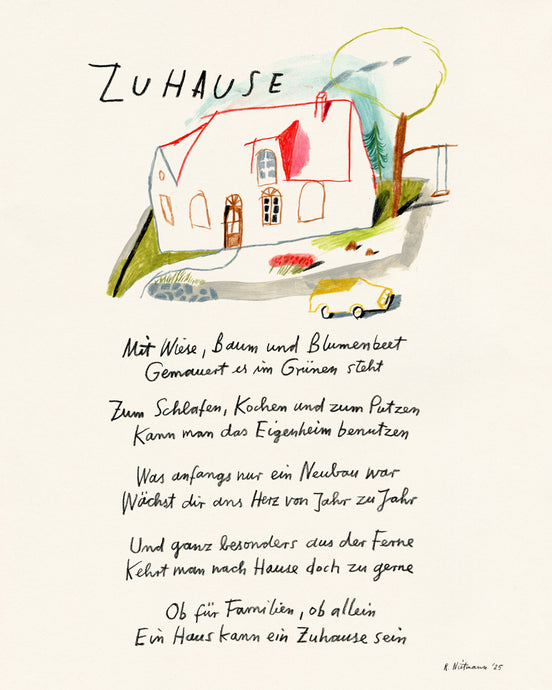 ZUHAUSE
Mit Wiese, Baum und Blumenbeet
Gemauert es im Grünen steht
Zum Schlafen, Kochen und zum Putzen
Kann man das Eigenheim benutzen
Was anfangs nur ein Neubau war
Wächst dir ans Herz von Jahr zu Jahr
Und ganz besonders aus der Ferne
Kehrt man nach Hause doch zu gerne
Ob für Familien, ob allein
Ein Haus kann ein Zuhause sein
'25